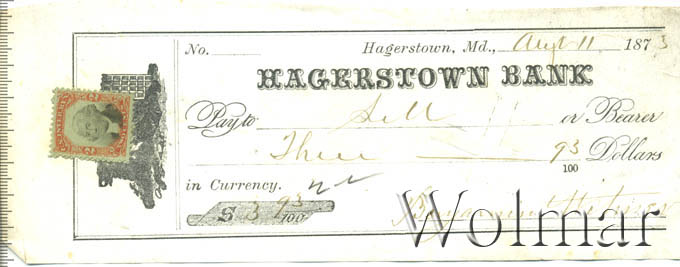 No. Hagerstown, Md., Aug 11 1873
HAGERSTOWN BANK
Pay to Self or Bearer
Three 93/100 Dollars
in Currency.
$ 3 93/100
Wolmar